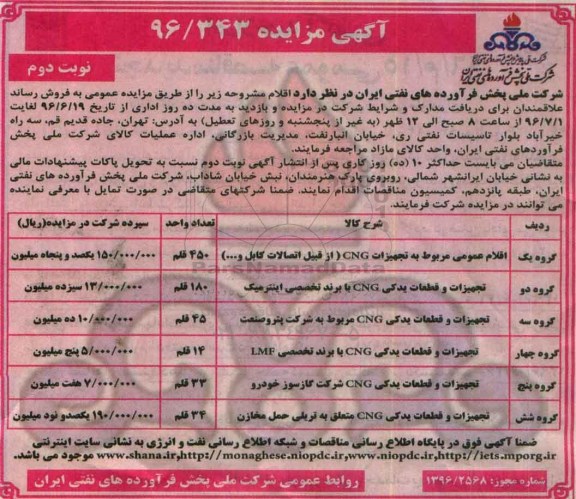 آگهی مزایده ۹۶/۳۴۳
نوبت دوم
شرکت ملی پخش فرآورده های نفتی ایران
شرکت ملی پخش فرآورده های نفتی ایران در نظر دارد اقلام مشروحه زیر را از طریق مزایده عمومی به فروش رساند
علاقمندان برای دریافت مدارک و شرایط شرکت در مزایده و بازدید به مدت ده روز اداری از تاریخ ۹۶/۶/۱۹ لغایت
۹۶/۷/۱ از ساعت ۸ صبح الی ۱۲ ظهر (به غیر از پنجشنبه و روزهای تعطیل) به آدرس: تهران، جاده قدیم قم، سه راه
خیرآباد بلوار تاسیسات نفتی ری، خیابان انبارنفت، مدیریت بازرگانی، اداره عملیات کالای شرکت ملی پخش
فرآوردهای نفتی ایران، واحد کالای مازاد مراجعه فرمایند.
متقاضیان می بایست حداکثر ۱۰ (ده) روز کاری پس از انتشار آگهی نوبت دوم نسبت به تحویل پاکات پیشنهادات مالی
به نشانی خیابان ایرانشهر شمالی، روبروی پارک هنرمندان، نبش خیابان شاداب، شرکت ملی پخش فرآورده های نفتی
ایران، طبقه پانزدهم، کمیسیون مناقصات اقدام نمایند. ضمنا شرکتهای متقاضی در صورت تمایل با معرفی نماینده
می توانند در مزایده شرکت فرمایند.
ردیف شرح کالا تعداد واحد سپرده شرکت در مزایده(ریال)
گروه یک اقلام عمومی مربوط به تجهیزات CNG ( از قبیل اتصالات کابل و...) ۴۵۰ قلم ۱۵۰/۰۰۰/۰۰۰ یکصد و پنجاه میلیون
گروه دو تجهیزات و قطعات یدکی CNG با برند تخصصی اینترمیک ۱۸۰ قلم ۱۳/۰۰۰/۰۰۰ سیزده میلیون
گروه سه تجهیزات و قطعات یدکی CNG مربوط به شرکت پتروصنعت ۴۵ قلم ۱۰/۰۰۰/۰۰۰ ده میلیون
گروه چهار تجهیزات و قطعات یدکی CNG با برند تخصصی LMF ۱۴ قلم ۵/۰۰۰/۰۰۰ پنج میلیون
گروه پنج تجهیزات و قطعات یدکی CNG شرکت گازسوز خودرو ۳۳ قلم ۷/۰۰۰/۰۰۰ هفت میلیون
گروه شش تجهیزات و قطعات یدکی CNG متعلق به تریلی حمل مخازن ۳۴ قلم ۱۹۰/۰۰۰/۰۰۰ یکصدو نود میلیون
ضمنا آگهی فوق در پایگاه اطلاع رسانی مناقصات و شبکه اطلاع رسانی نفت و انرژی به نشانی سایت اینترنتی
www.shana.ir,http://monaghese.niopdc.ir,www.niopdc.ir,http://iets.mporg.ir موجود می باشد.
شماره مجوز: ۱۳۹۶/۲۵۶۸ روابط عمومی شرکت ملی پخش فرآورده های نفتی ایران